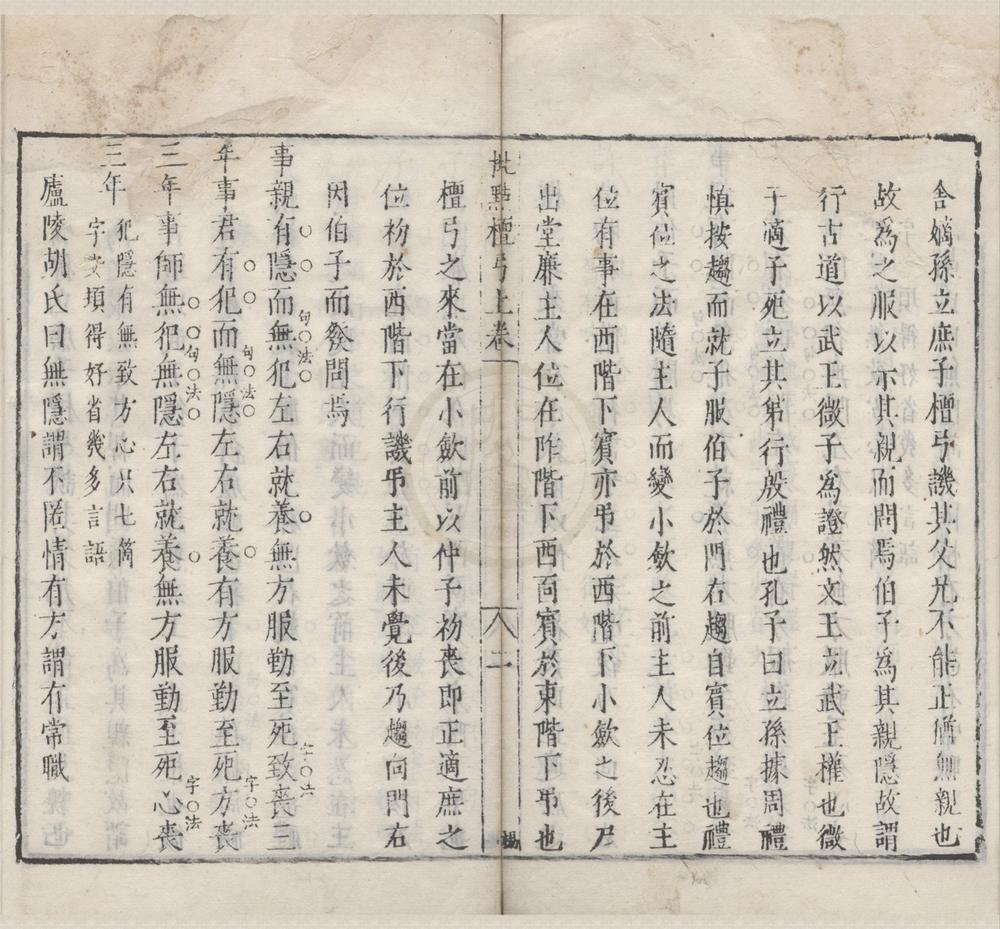 舍嫡孫立庶子檀弓譏其父兄不能正猶無親也
故爲之服以示其親而問焉伯子為其親隱故謂
行古道以武王微子為證然文王立武王權也微
子適子死立其弟行殷禮也孔子曰立孫據周禮
慎按趨而就子服伯子於門右趨自賓位趨也禮
賓位之法隨主人而變小斂之前主人未忍在主
位有事在西階下賓亦弔於西階下小斂之後尸
出堂廉主人位在阼階下西面賓於東階下弔也
批點檀弓上卷 二
檀弓之來當在小斂前以仲子初喪即正適庶之
位初於西階下行譏弔主人未覺後乃趨向門右
因伯子而發問焉
事親有隱而無犯左右就養無方服勤至死致喪三
句法 字法
年事君有犯而無隱左右就養有方服勤至死方喪
句法 字法
三年事師無犯無隱左右就養無方服勤至死心喪
句法 字法
三年
犯隱有無致方心只七箇
字 項得好省幾多言語
廬陵胡氏曰無隱謂不匿情有方謂有常職